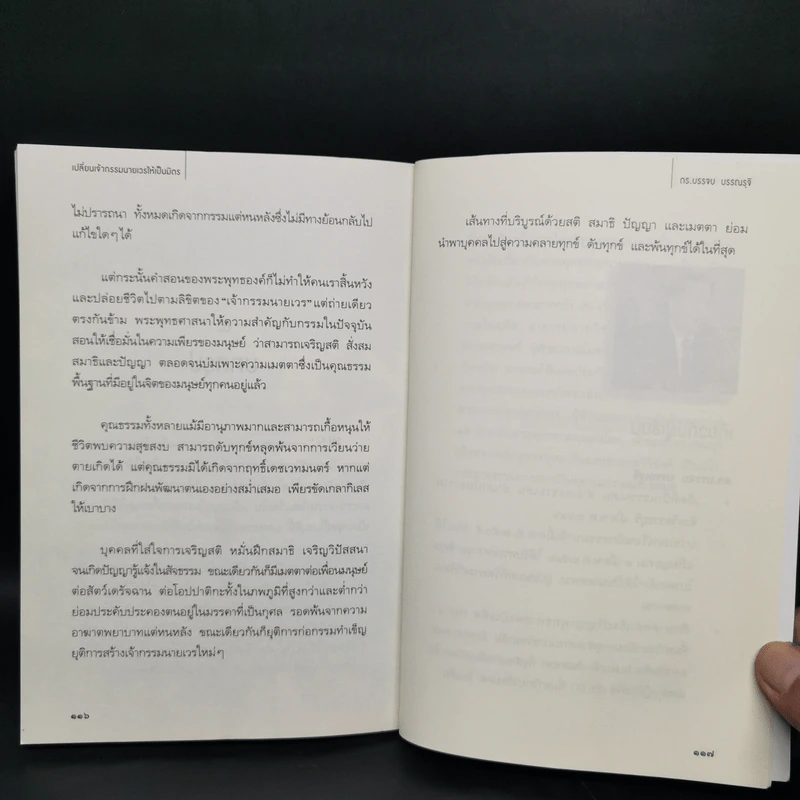 เปลี่ยนเจ้ากรรมนายเวรให้เป็นมิตร
ไม่ปรารถนา ทั้งหมดเกิดจากกรรมแต่หนหลังซึ่งไม่มีทางย้อนกลับไป
แก้ไขใดๆ ได้
แต่กระนั้นคำสอนของพระพุทธองค์ก็ไม่ทำให้คนเราสิ้นหวัง
และปล่อยชีวิตไปตามลิขิตของ “เจ้ากรรมนายเวร” แต่ถ่ายเดียว
ตรงกันข้าม พระพุทธศาสนาให้ความสำคัญกับกรรมในปัจจุบัน
สอนให้เชื่อมั่นในความเพียรของมนุษย์ ว่าสามารถเจริญสติ สั่งสม
สมาธิและปัญญา ตลอดจนบ่มเพาะความเมตตาซึ่งเป็นคุณธรรม
พื้นฐานที่มีอยู่ในจิตของมนุษย์ทุกคนอยู่แล้ว
คุณธรรมทั้งหลายแม้มีอานุภาพมากและสามารถเกื้อหนุนให้
ชีวิตพบความสุขสงบ สามารถดับทุกข์หลุดพ้นจากการเวียนว่าย
ตายเกิดได้ แต่คุณธรรมมิได้เกิดจากฤทธิ์เดชเวทมนตร์ หากแต่
เกิดจากการฝึกฝนพัฒนาตนเองอย่างสม่ำเสมอ เพียรขัดเกลากิเลส
ให้เบาบาง
บุคคลที่ใส่ใจการเจริญสติ หมั่นฝึกสมาธิ เจริญวิปัสสนา
จนเกิดปัญญารู้แจ้งในสัจธรรม ขณะเดียวกันก็มีเมตตาต่อเพื่อนมนุษย์
ต่อสัตว์เดรัจฉาน ต่อโอปปาติกะทั้งในภพภูมิที่สูงกว่าและต่ำกว่า
ย่อมประคับประคองตนอยู่ในมรรคาที่เป็นกุศล รอดพ้นจากความ
อาฆาตพยาบาทแต่หนหลัง ขณะเดียวกันก็ยุติการก่อกรรมทำเข็ญ
ยุติการสร้างเจ้ากรรมนายเวรใหม่ๆ
๑๑๖
ดร.บรรจบ บรรณรุจิ
เส้นทางที่บริบูรณ์ด้วยสติ สมาธิ ปัญญา และเมตตา ย่อม
นำพาบุคคลไปสู่ความคลายทุกข์ ดับทุกข์ และพ้นทุกข์ได้ในที่สุด
๑๑๗